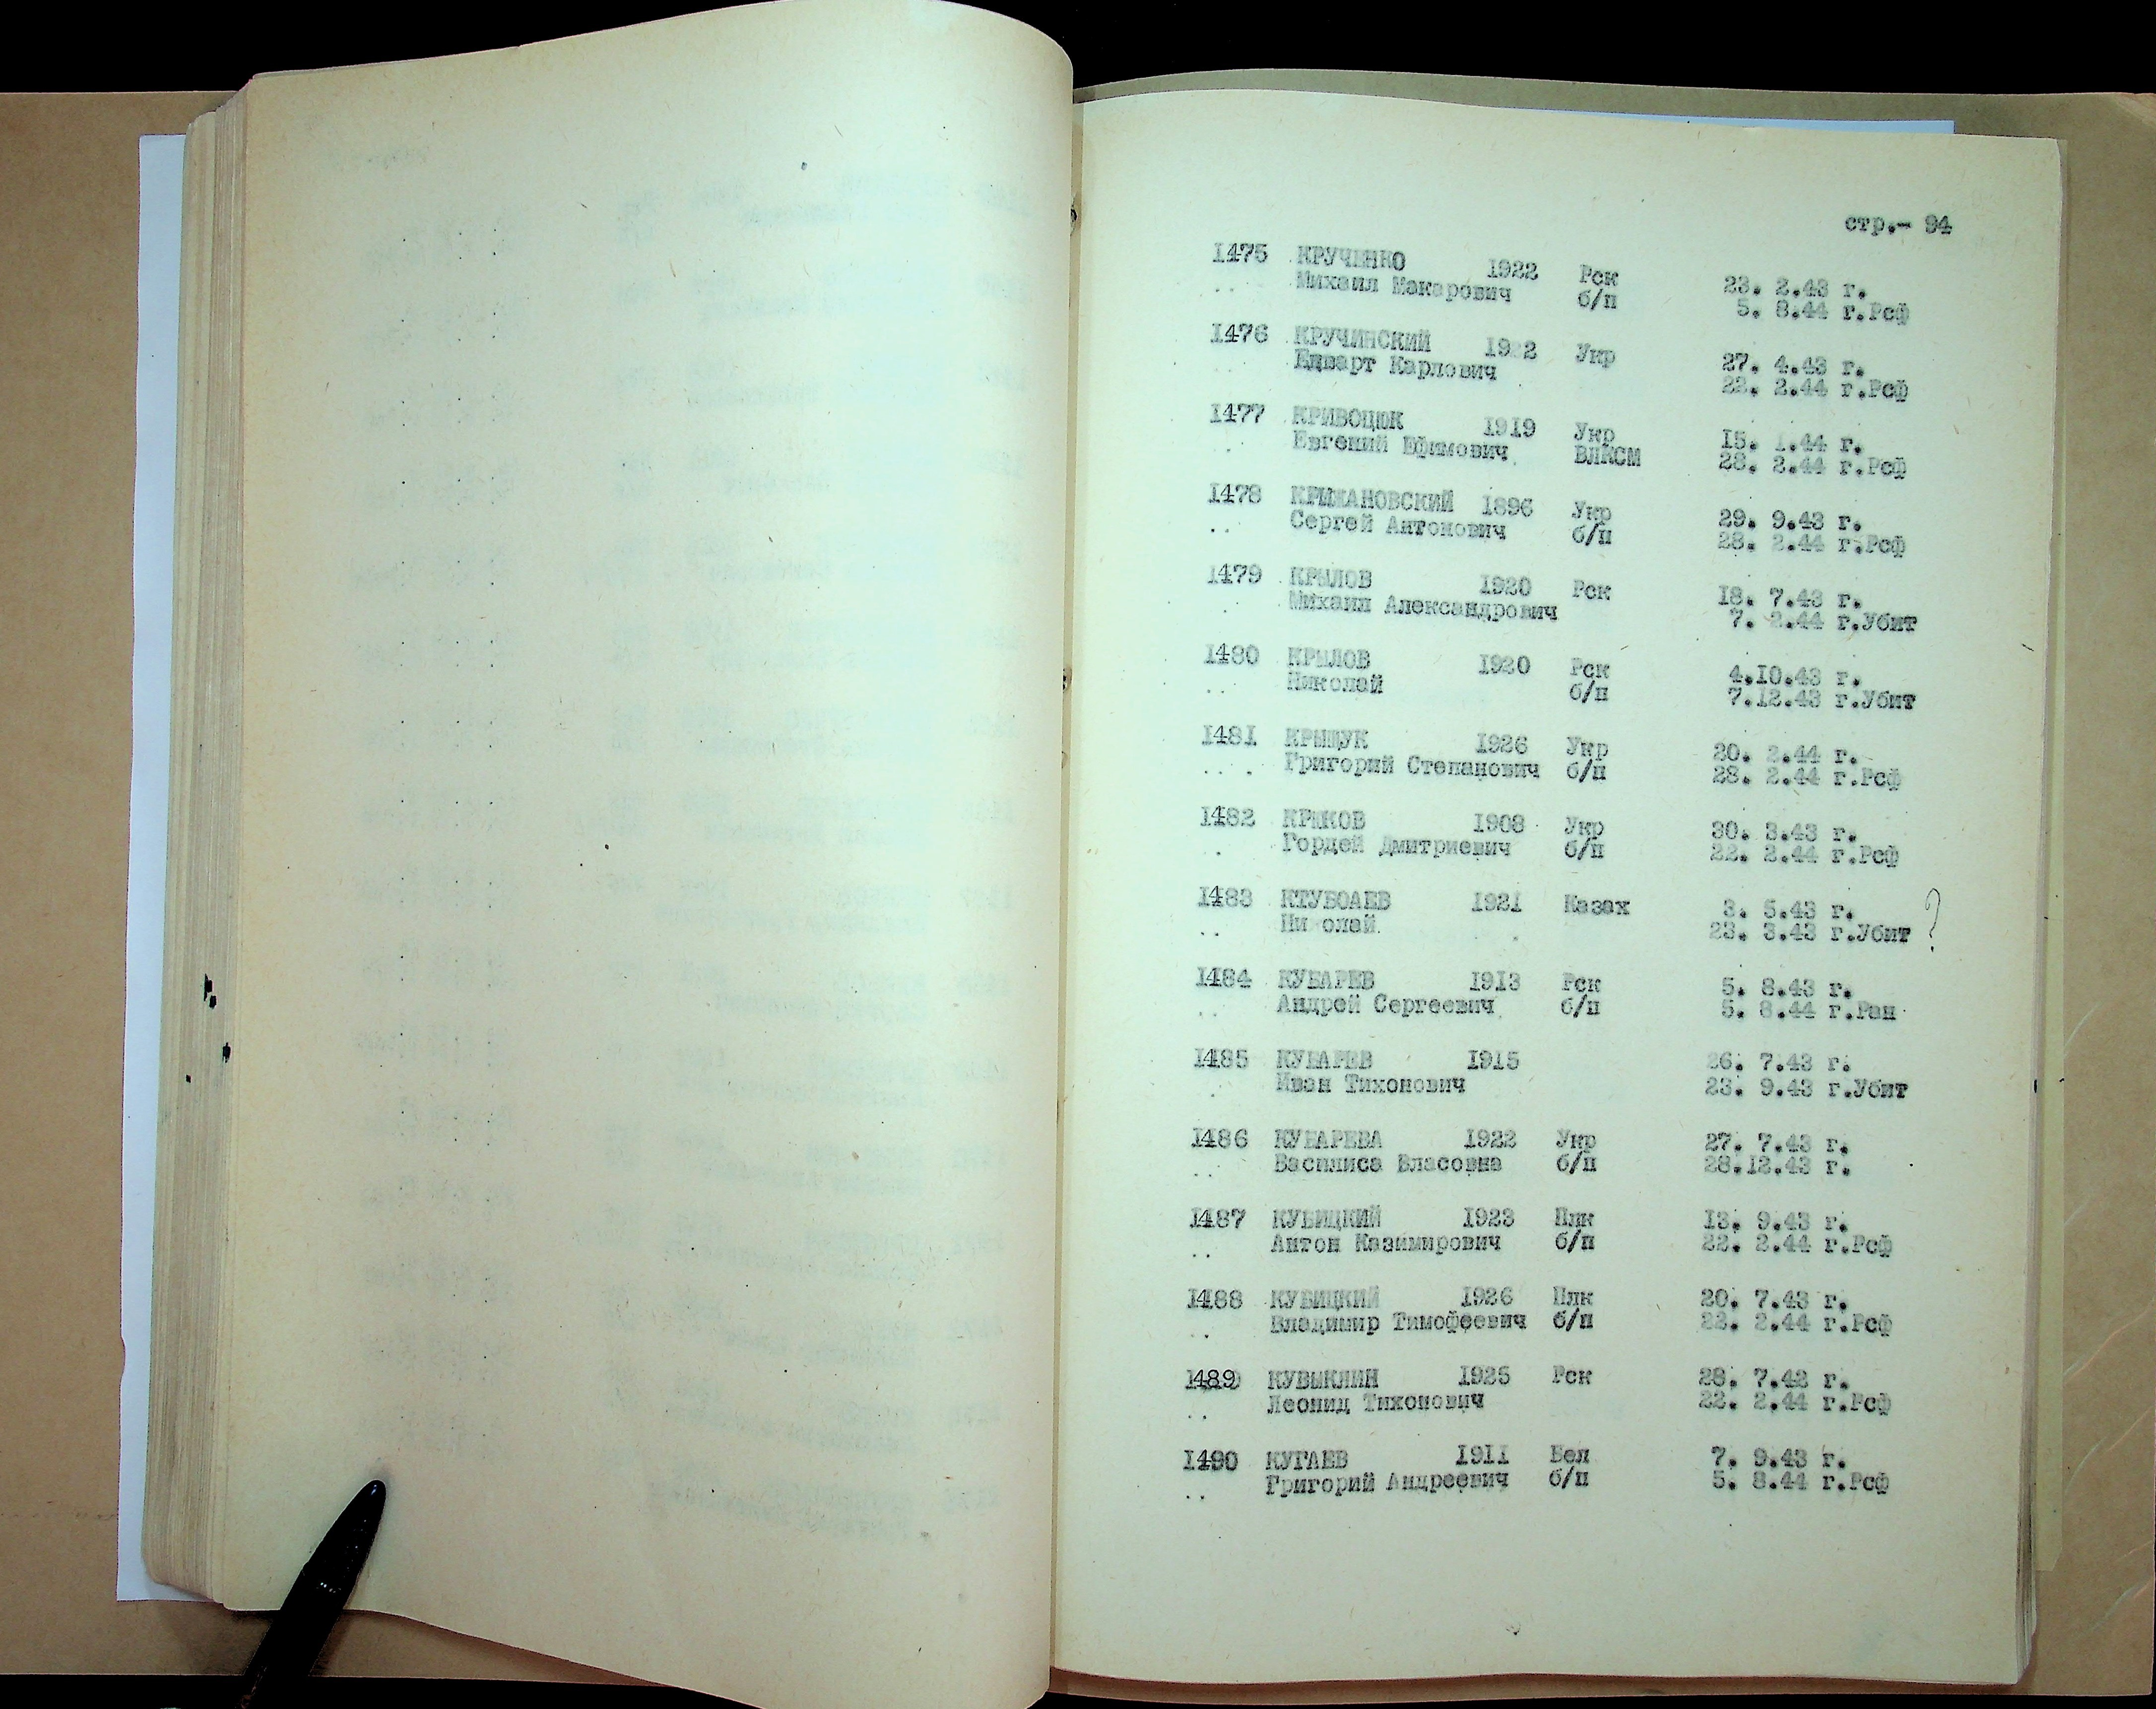 стр.- 94
1475 КРУЧЕНКО 1922 Рск 23. 2.43 г.
Михаил Макарович б/п 5. 8.44 г.Рсф
1476 КРУЧИНСКИЙ 1922 Укр 27. 4.43 г.
Едварт Карлович 22. 2.44 г.Рсф
1477 КРИВОЦЮК 1919 Укр 15. 1.44 г.
Евгений Ефимович ВЛКСМ 28. 2.44 г.Рсф
1478 КРЫЖАНОВСКИЙ 1896 Укр 29. 9.43 г.
Сергей Антонович б/п 28. 2.44 г.Рсф
1479 КРЫЛОВ 1920 Рск 18. 7.43 г.
Михаил Александрович 7. 2.44 г.Убит
1480 КРЫЛОВ 1920 Рск 4.10.43 г.
Николай б/п 7.12.43 г.Убит
1481 КРЫЩУК 1926 Укр 20. 2.44 г.
Григорий Степанович б/п 28. 2.44 г.Рсф
1482 КРЮКОВ 1908 Укр 30. 3.43 г.
Гордей Дмитриевич б/п 22. 2.44 г.Рсф
1483 КТУБОАЕВ 1921 Казах 3. 5.43 г. ?
Ни олай 23. 3.43 г.Убит
1484 КУБАРЕВ 1913 Рск 5. 8.43 г.
Андрей Сергеевич б/п 5. 8.44 г.Ран
1485 КУБАРЕВ 1915 26. 7.43 г.
Иван Тихонович 23. 9.43 г.Убит
1486 КУБАРЕВА 1922 Укр 27. 7.43 г.
Василиса Власовна б/п 28.12.43 г.
1487 КУБИЦКИЙ 1923 Плк 13. 9.43 г.
Антон Казимирович б/п 22. 2.44 г.Рсф
1488 КУБИЦКИЙ 1926 Плк 20. 7.43 г.
Владимир Тимофеевич б/п 22. 2.44 г.Рсф
1489 КУВЫКЛИН 1925 Рск 28. 7.42 г.
Леонид Тихонович 22. 2.44 г.Рсф
1490 КУГАЕВ 1911 Бел 7. 9.43 г.
Григорий Андреевич б/п 5. 8.44 г.Рсф